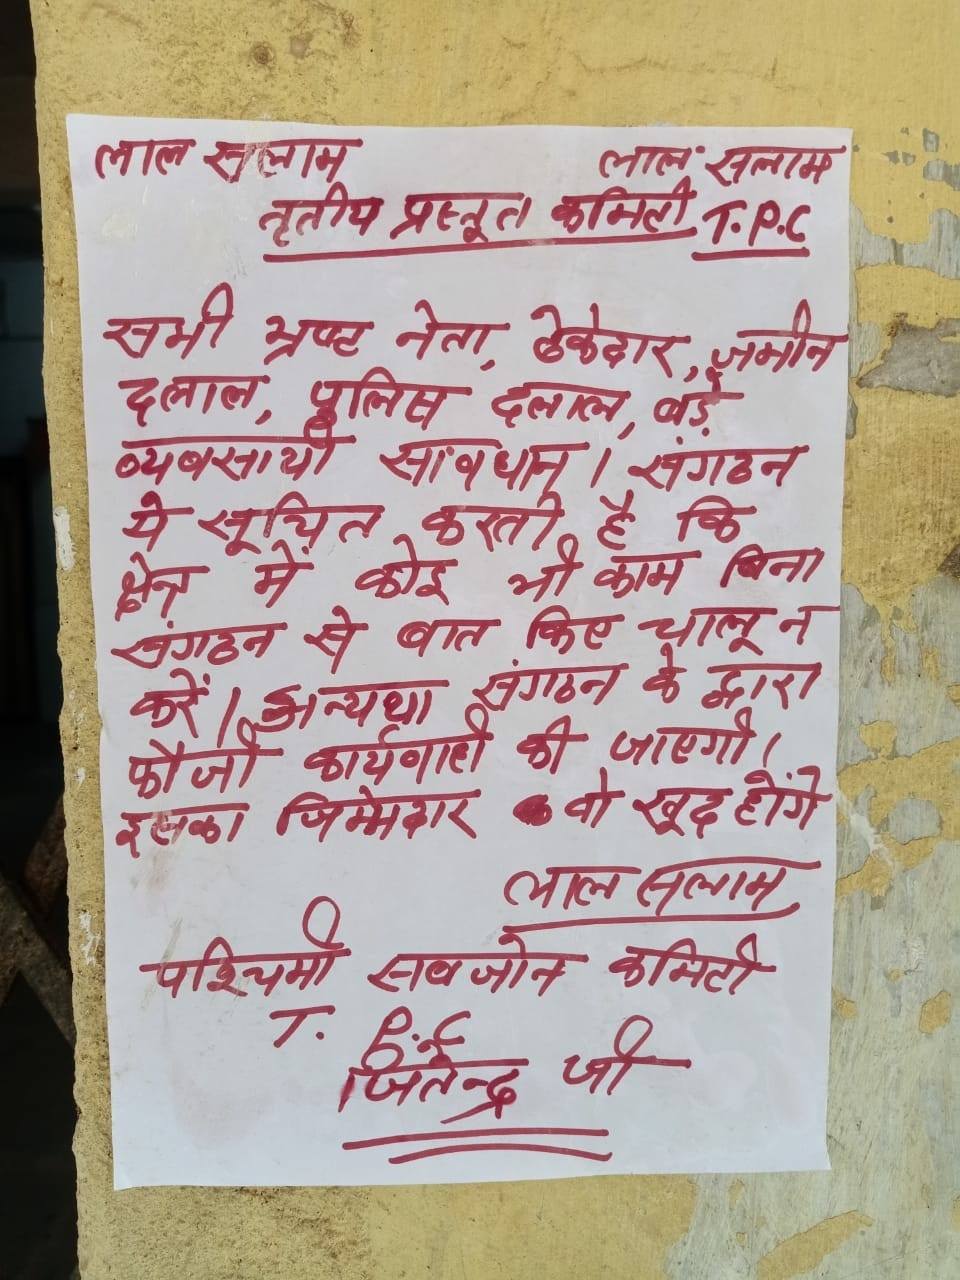 लाल सलाम लाल सलाम
तृतीय प्रस्तूत कमिटी T.P.C
सभी भ्रष्ट नेता, ठेकेदार, जमीन
दलाल, पुलिस दलाल, बड़े
व्यवसायी सावधान। संगठन
ये सूचित करती है कि
क्षेत्र में कोइ भी काम बिना
संगठन से बात किए चालू न
करें। अन्यथा संगठन के द्वारा
फौजी कार्यवाही की जाएगी।
इसका जिम्मेमदार वो खूद होंगे
लाल सलाम
पश्चिमी सबजोन कमिटी
T. P.C
जितेन्द्र जी